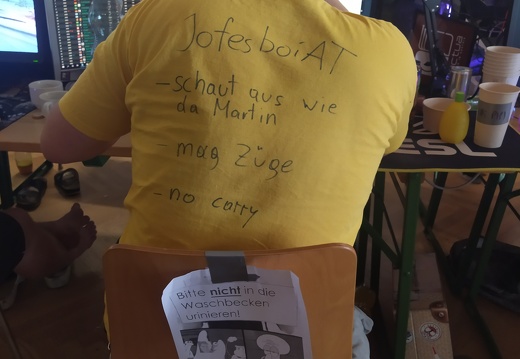 JofesboiAT
- schaut aus wie
da Martin
- mag Züge
- no carry
ESL
Bitte nicht in die
Waschbecken
urinieren!